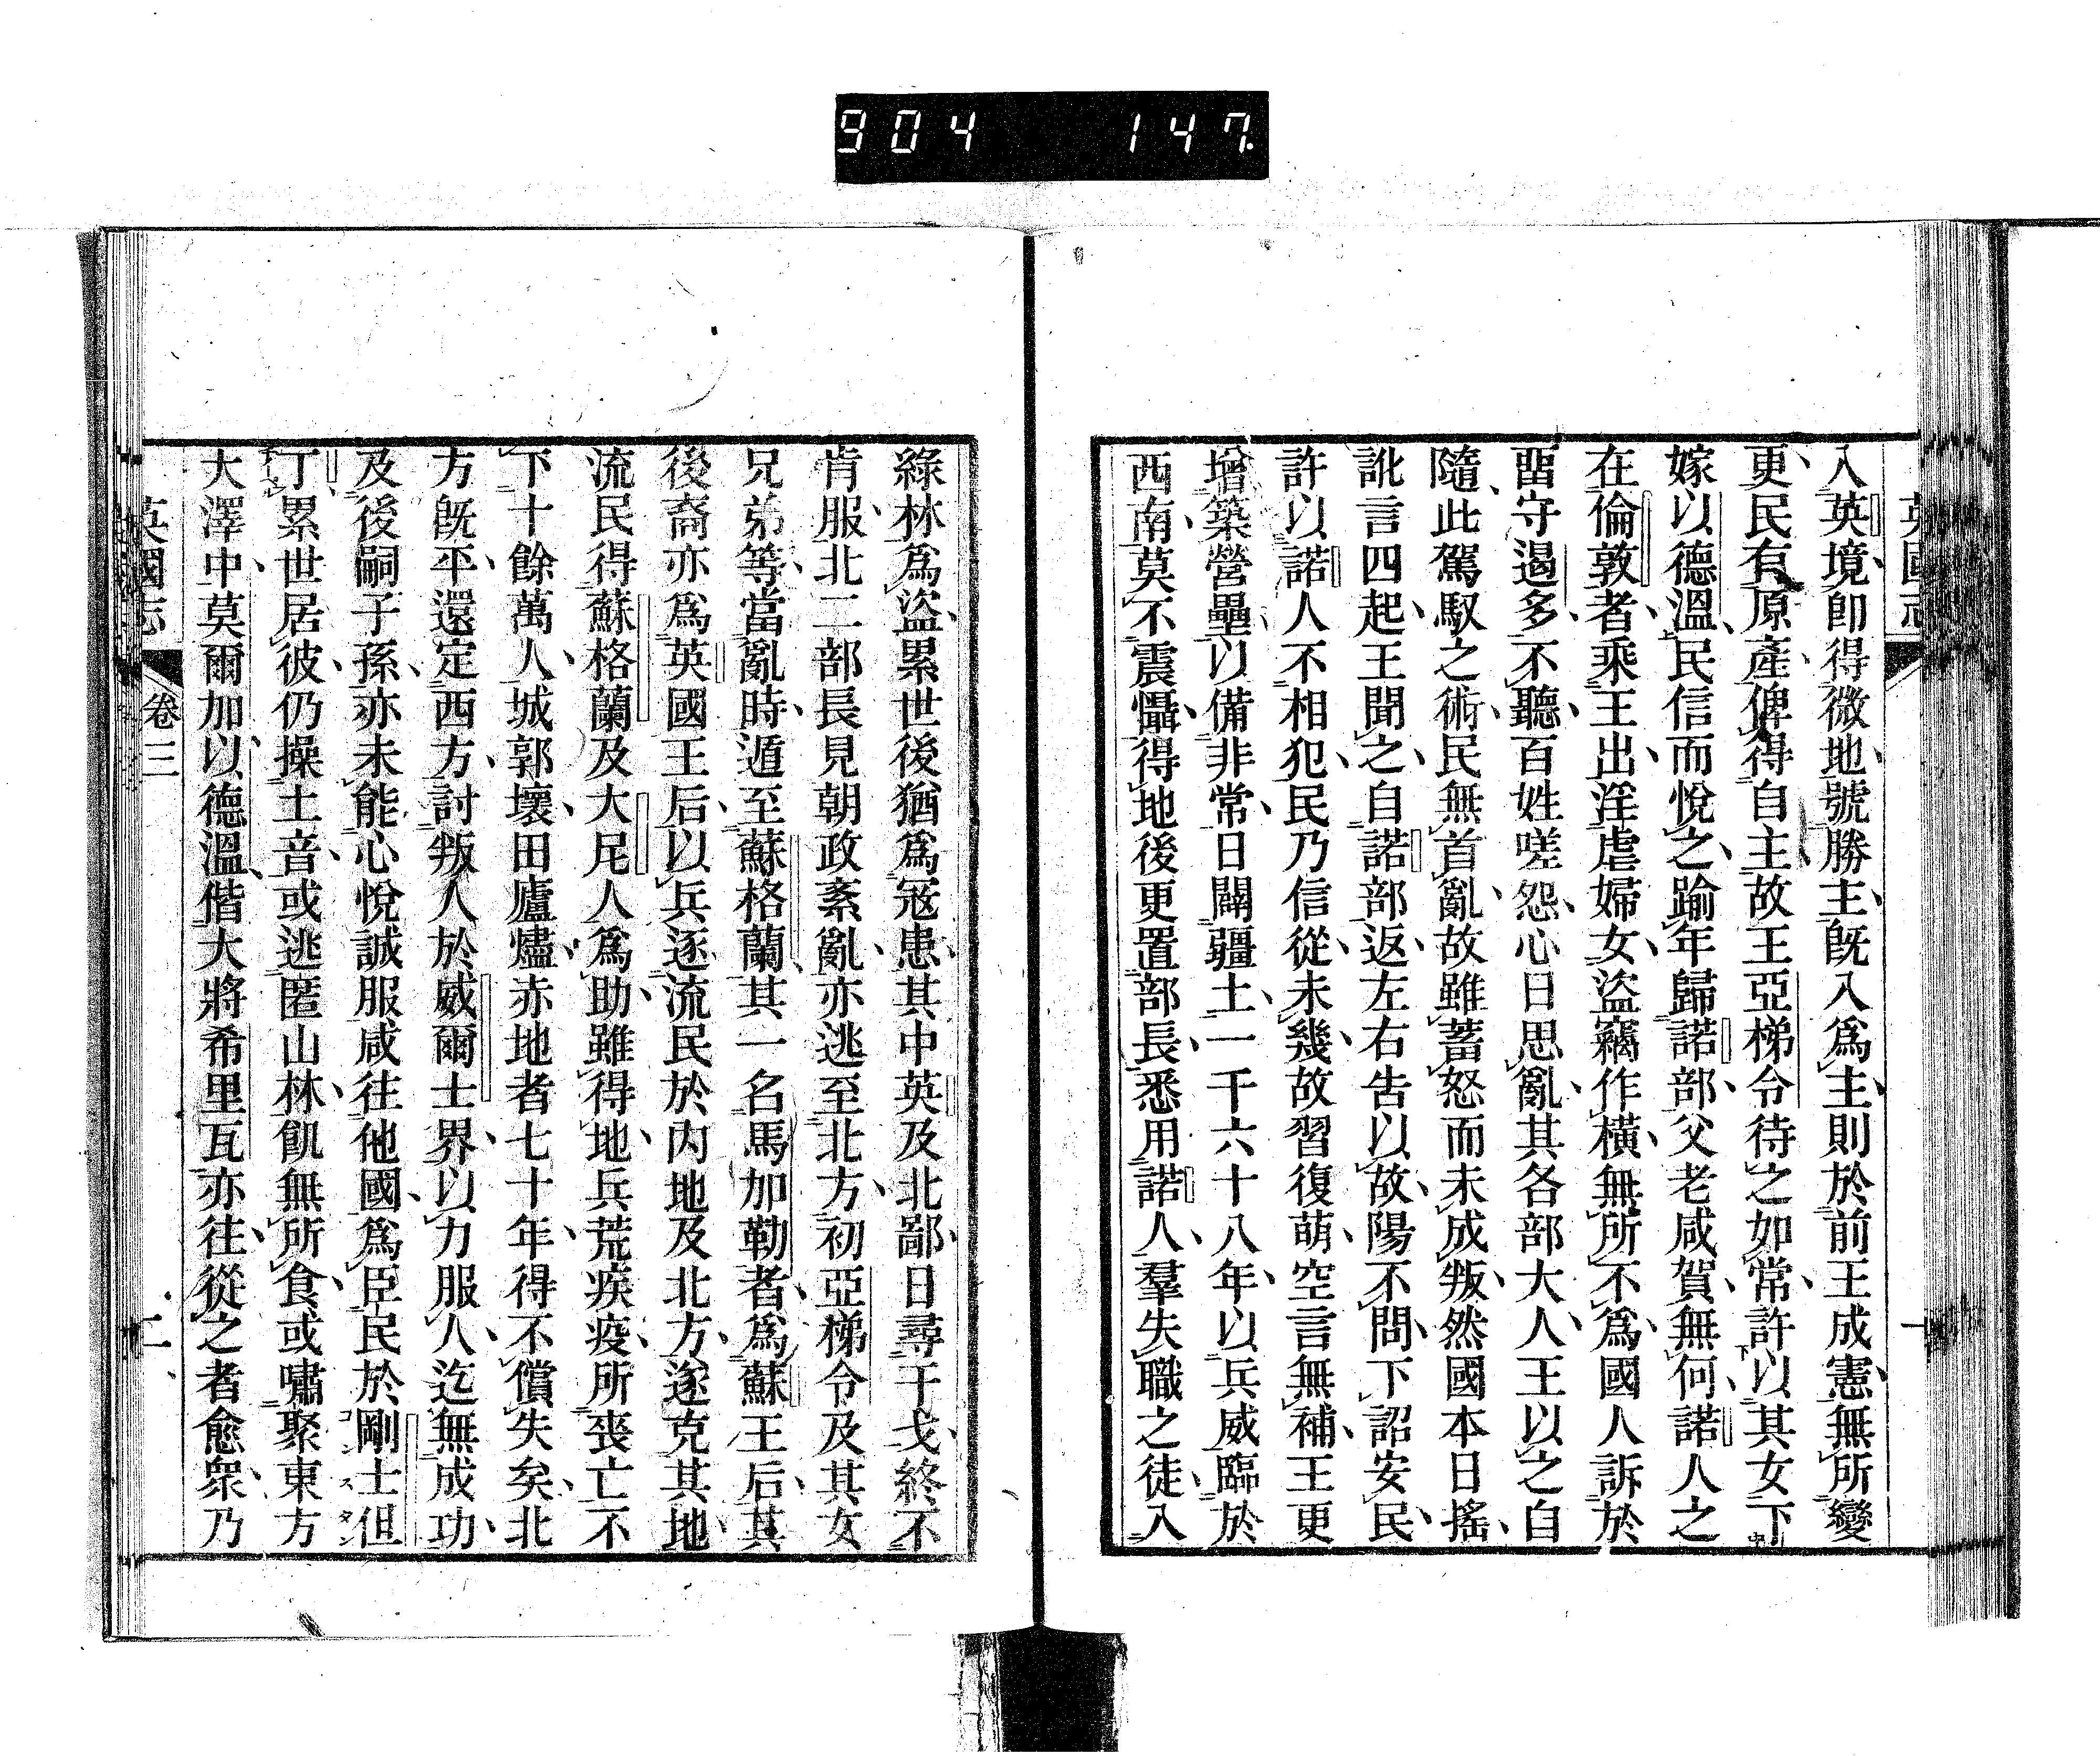 904 147.
英國志
入英境卽得微地號勝主旣入爲主則於前王成憲無所變
更民有原產俾得自主故王亞梯令待之如常許以其女下
嫁以德溫民信而悅之踰年歸諾部父老咸賀無何諾人之
在倫敦者乘王出淫虐婦女盜竊作橫無所不爲國人訴於
畱守遏多不聽百姓嗟怨心日思亂其各部大人王以之自
隨此駕馭之術民無首亂故雖蓄怒而未成叛然國本日搖
訛言四起王聞之自諾部返左右吿以故陽不問下詔安民
許以諾人不相犯民乃信從未幾故習復萌空言無補王更
增築營壘以備非常日闢疆土一千六十八年以兵威臨於
西南莫不震懾得地後更置部長悉用諾人羣失職之徒入
綠林爲盜累世後猶爲寇患其中英及北鄙日尋干戈終不
肯服北二部長見朝政紊亂亦逃至北方初亞梯令及其女
兄弟等當亂時遁至蘇格蘭其一名馬加勒者爲蘇王后其
後裔亦爲英國王后以兵逐流民於內地及北方遂克其地
流民得蘇格蘭及大尼人爲助雖得地兵荒疾疫所喪亡不
下十餘萬人城郭壞田廬燼赤地者七十年得不償失矣北
方旣平還定西方討叛人於威爾士界以力服人迄無成功
及後嗣子孫亦未能心悅誠服咸往他國爲臣民於剛士但
コンスタン
丁累世居彼仍操土音或逃匿山林飢無所食或嘯聚東方
大澤中莫爾加以德溫偕大將希里瓦亦往從之者愈眾乃
英國志 卷三 二